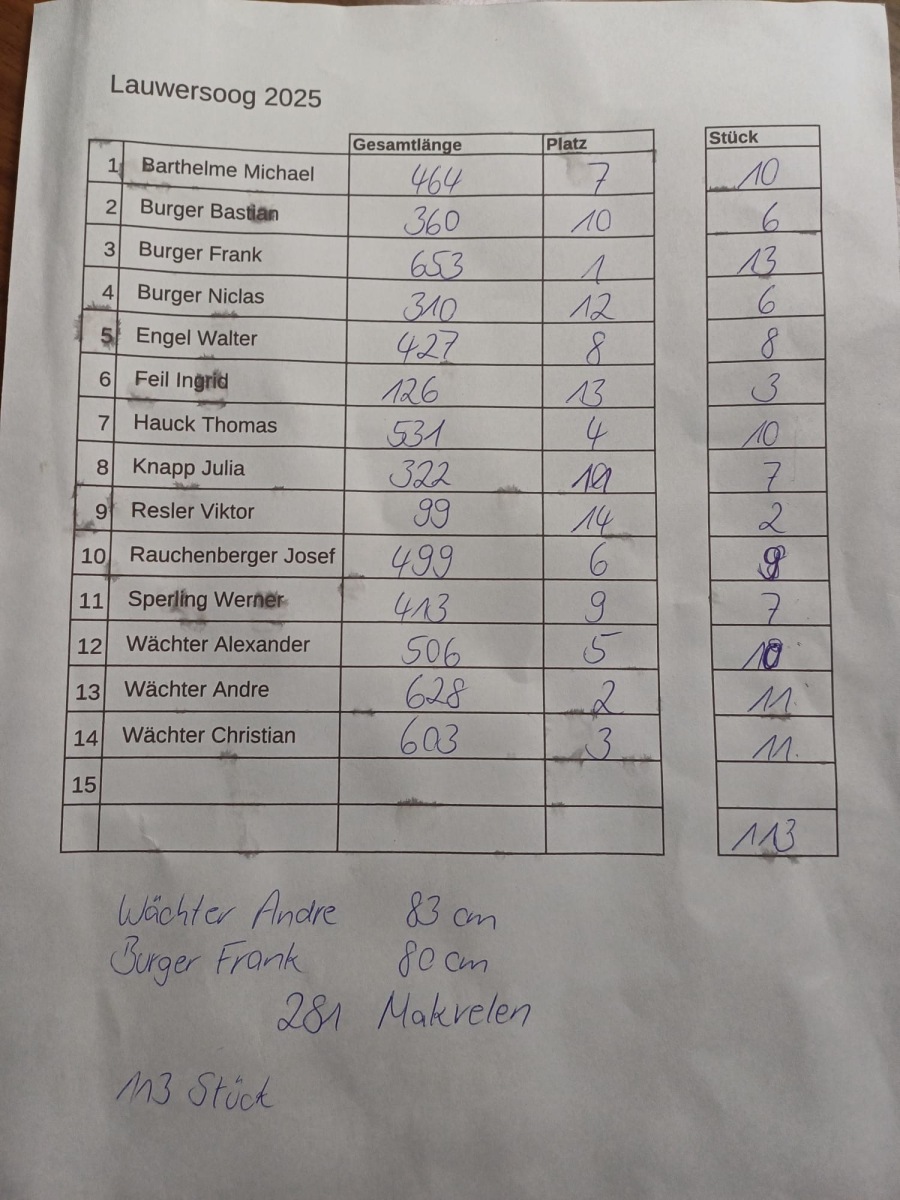 Lauwersoog 2025
Gesamtlänge Platz Stück
1 Barthelme Michael 464 7 10
2 Burger Bastian 360 10 6
3 Burger Frank 653 1 13
4 Burger Niclas 310 12 6
5 Engel Walter 427 8 8
6 Feil Ingrid 126 13 3
7 Hauck Thomas 531 4 10
8 Knapp Julia 322 11 7
9 Resler Viktor 99 14 2
10 Rauchenberger Josef 499 6 9
11 Sperling Werner 413 9 7
12 Wächter Alexander 506 5 10
13 Wächter Andre 628 2 11
14 Wächter Christian 603 3 11
15
113
Wächter Andre 83 cm
Burger Frank 80 cm
281 Makrelen
113 Stück